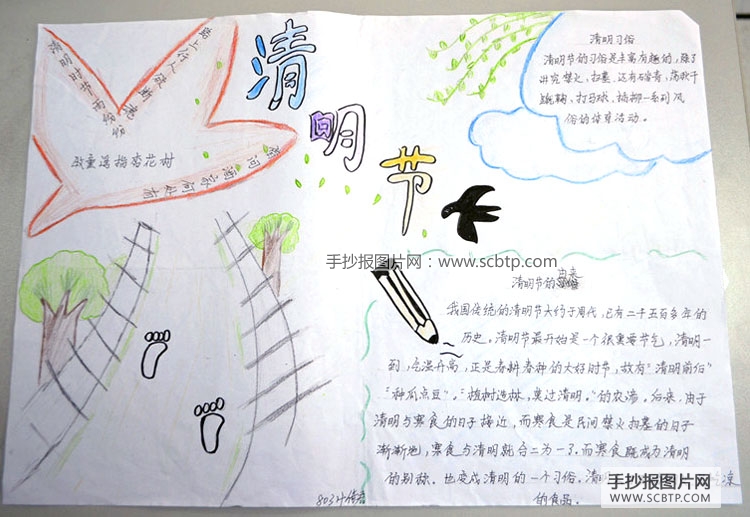 清明节
清明时节雨纷纷
路上行人欲断魂
借问酒家何处有
牧童遥指杏花村
清明习俗
清明节的习俗是丰富有趣的，除了
讲究禁火、扫墓，还有踏青、荡秋千
蹴鞠、打马球、插柳一系列风
俗的体育活动。
手抄报图片网：www.scbtp.com
清明节的由来
我国传统的清明节大约于周代，已有二千五百多年的
历史，清明节最开始是一个很重要节气，清明一
到，气温升高，正是春耕春种的大好时节，故有"清明前后"
"种瓜点豆"。"植树造林，莫过清明。"的农谚。后来，由于
清明与寒食的日子接近，而寒食是民间禁火扫墓的日子
渐渐地，寒食与清明就合二为一了，而寒食既成为清明
的别称，也变成清明的一个习俗，清
凉
的食品。
803
手抄报图片网
WWW.SCBTP.COM